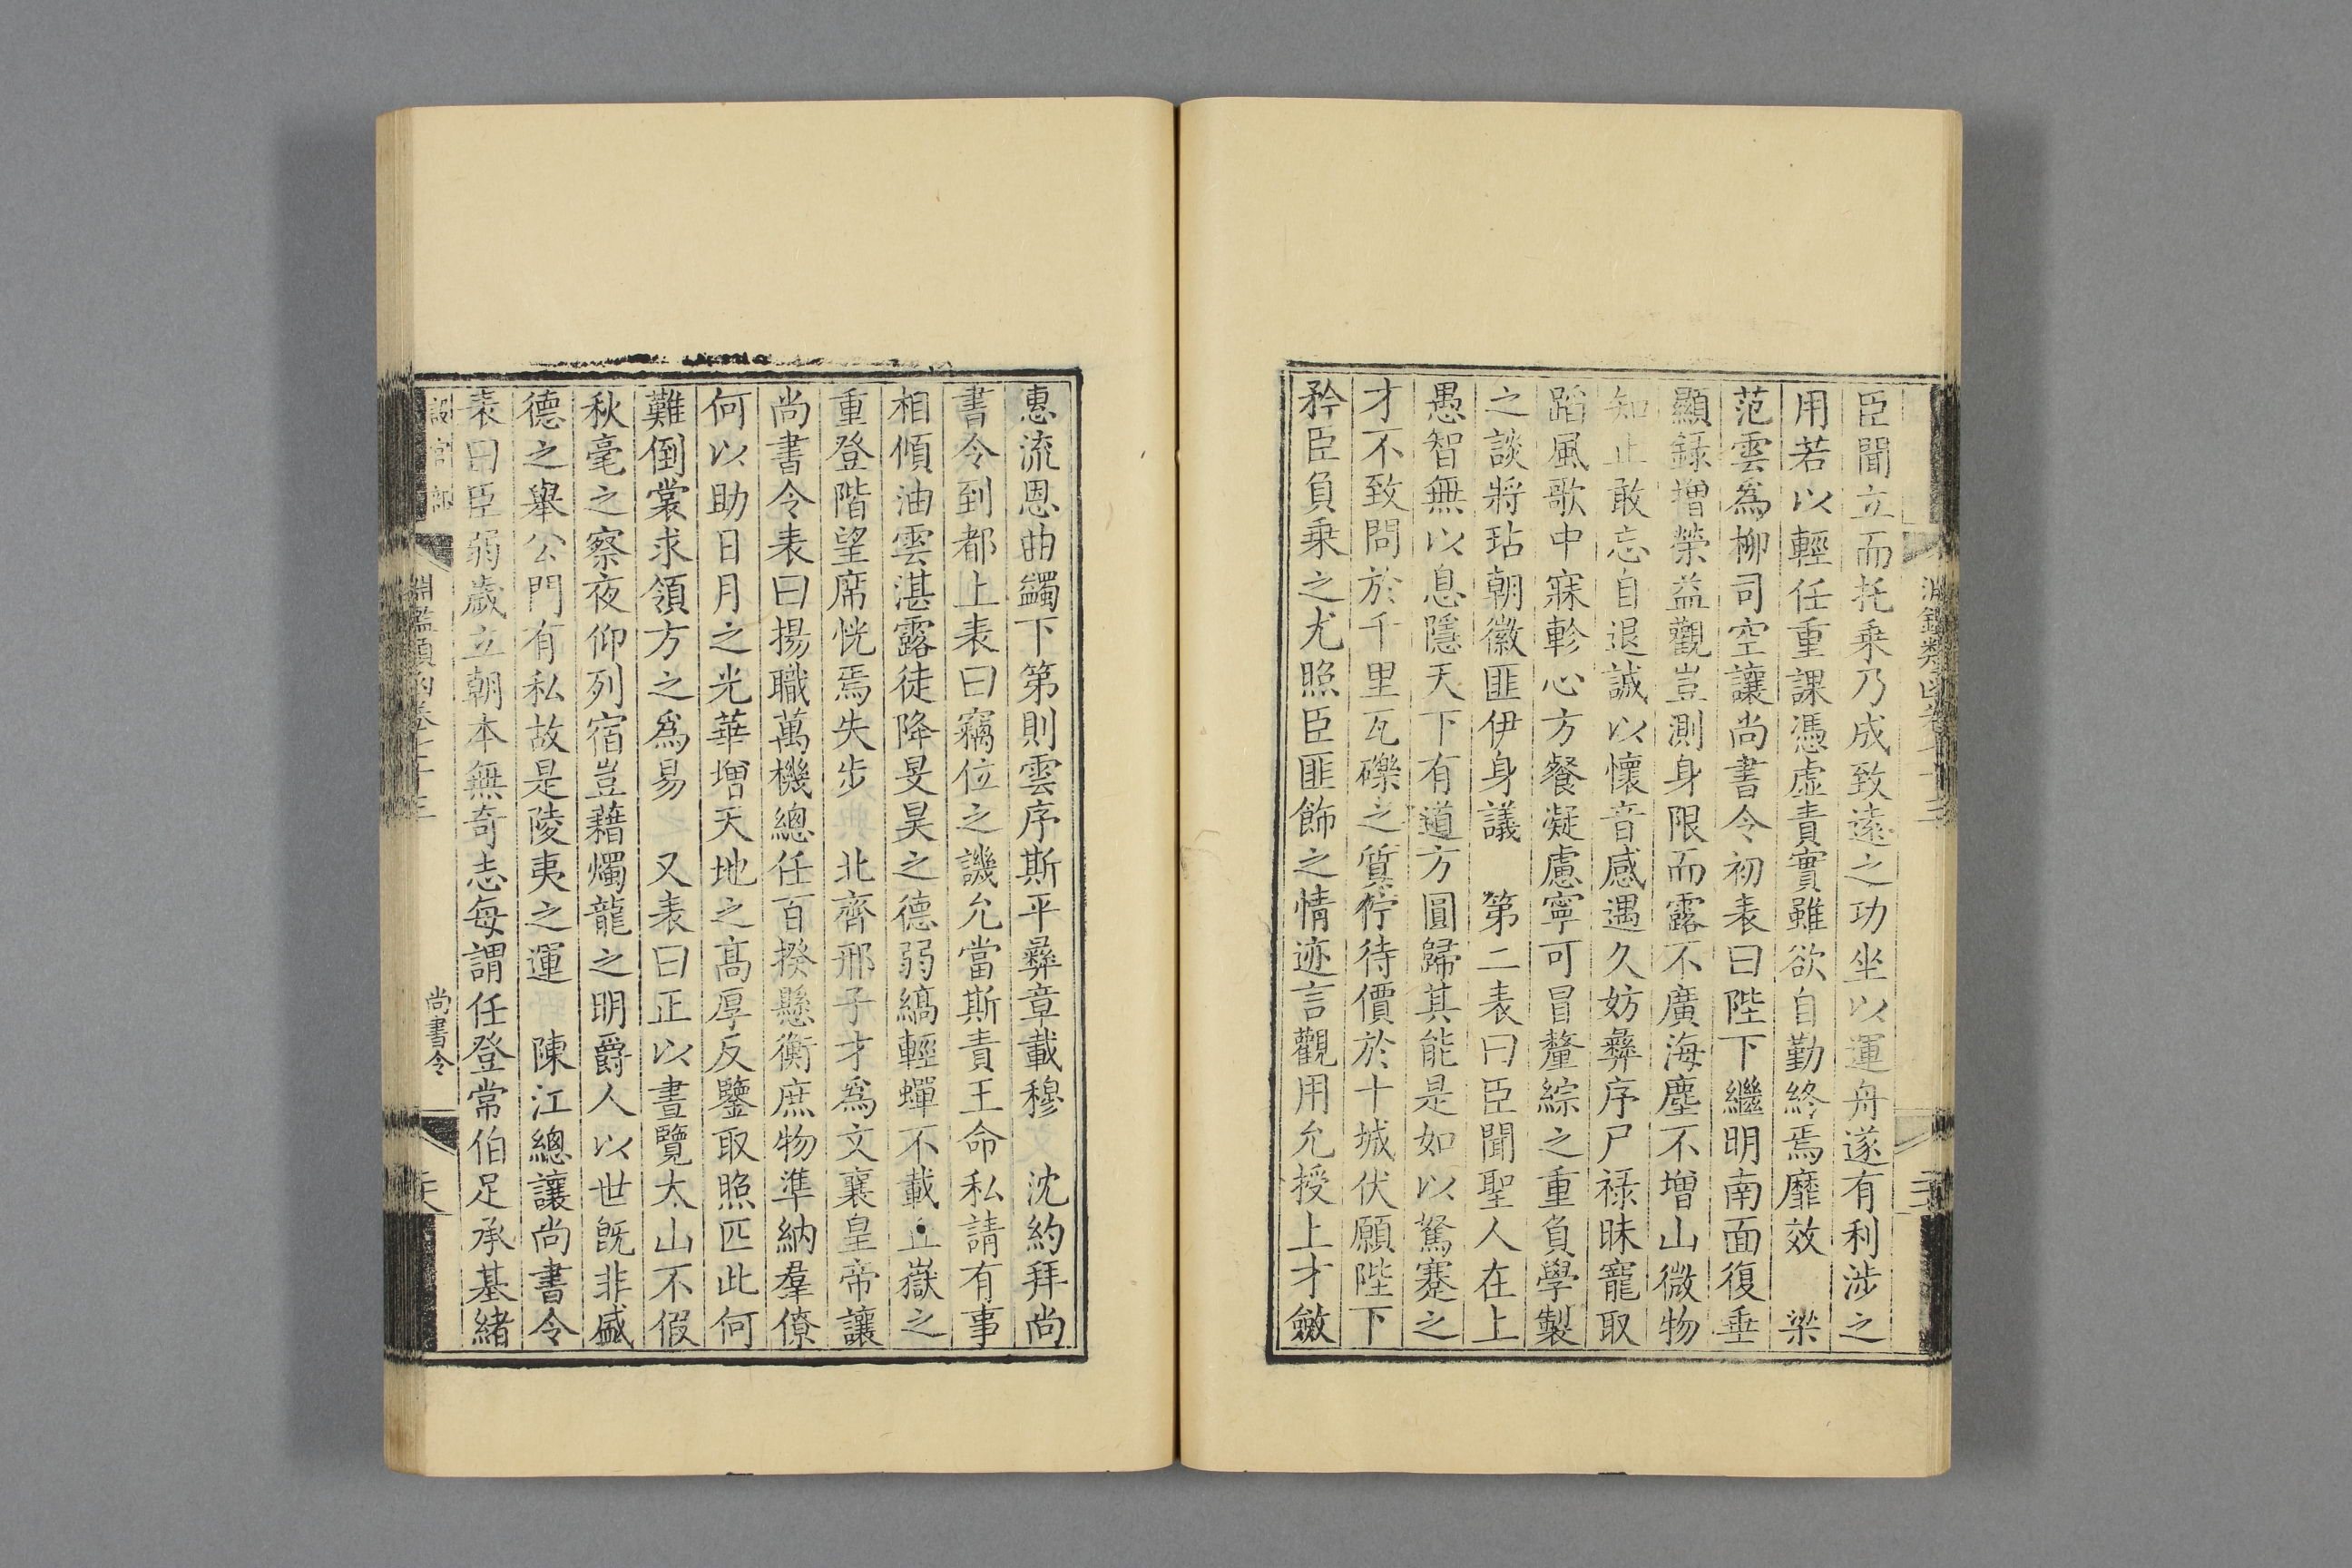 臣聞立而托乗乃成致遠之功坐以運舟遂有利涉之
用若以輕任重課憑虛責實雖欲自勤終焉靡效　梁
范雲爲柳司空讓尚書令初表曰陛下繼明南面復垂
顯錄增榮益觀豈測身限而露不廣海塵不增山微物
知止敢忘自退誠以懷音感遇久妨彝序尸祿昧寵取
蹈風歌中寐軫心方餐凝慮寧可冒釐綜之重負學製
之談將玷朝徽匪伊身議　第二表曰臣聞聖人在上
愚智無以息隱天下有道方圓歸其能是如以駑蹇之
才不致問於千里瓦礫之質佇待價於十城伏願陛下
矜臣負乗之尤照臣匪飾之情迹言觀用允授上才斂
惠流恩曲蠲下第則雲序斯平彝章載穆　沈約拜尚
書令到都上表曰竊位之譏允當斯責王命私請有事
相傾油雲湛露徒降旻昊之德弱縞輕蟬不載丘嶽之
重登階望席恍焉失步　北齊邢子才爲文襄皇帝讓
尚書令表曰揚職萬機總任百揆懸衡庶物準納羣僚
何以助日月之光華增天地之高厚反鑒取照匹此何
難倒裳求領方之爲易　又表曰正以晝覽太山不假
秋毫之察夜仰列宿豈藉燭龍之明爵人以世旣非盛
德之舉公門有私故是陵夷之運　陳江總讓尚書令
表曰臣弱歲立朝本無奇志每謂任登常伯足承基緒
設官部　淵鑑類函卷七十三　尚書令